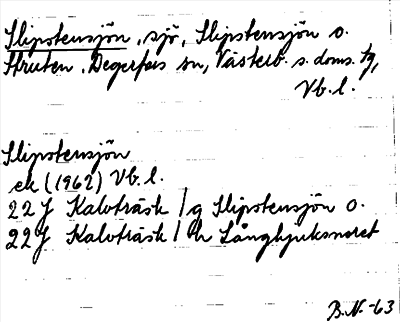 Slipstensjön, sjö, Slipstensjön o.
Struten, Degerfors sn, Västerb. s. doms. tg,
Vb. l.
Slipstensjön
ek (1962) Vb. l.
22 J Kalvträsk / g Slipstensjön o.
22 J Kalvträsk / h
B.N.-63